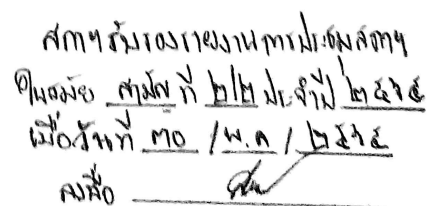 สภาฯ รับรองรายงานการประชุมสภาฯ
ในสมัย สามัญ ที่ ๒/๒ ประจำปี ๒๕๖๕
เมื่อวันที่ ๓๐ / พ.ค / ๒๕๖๕
ลงชื่อ